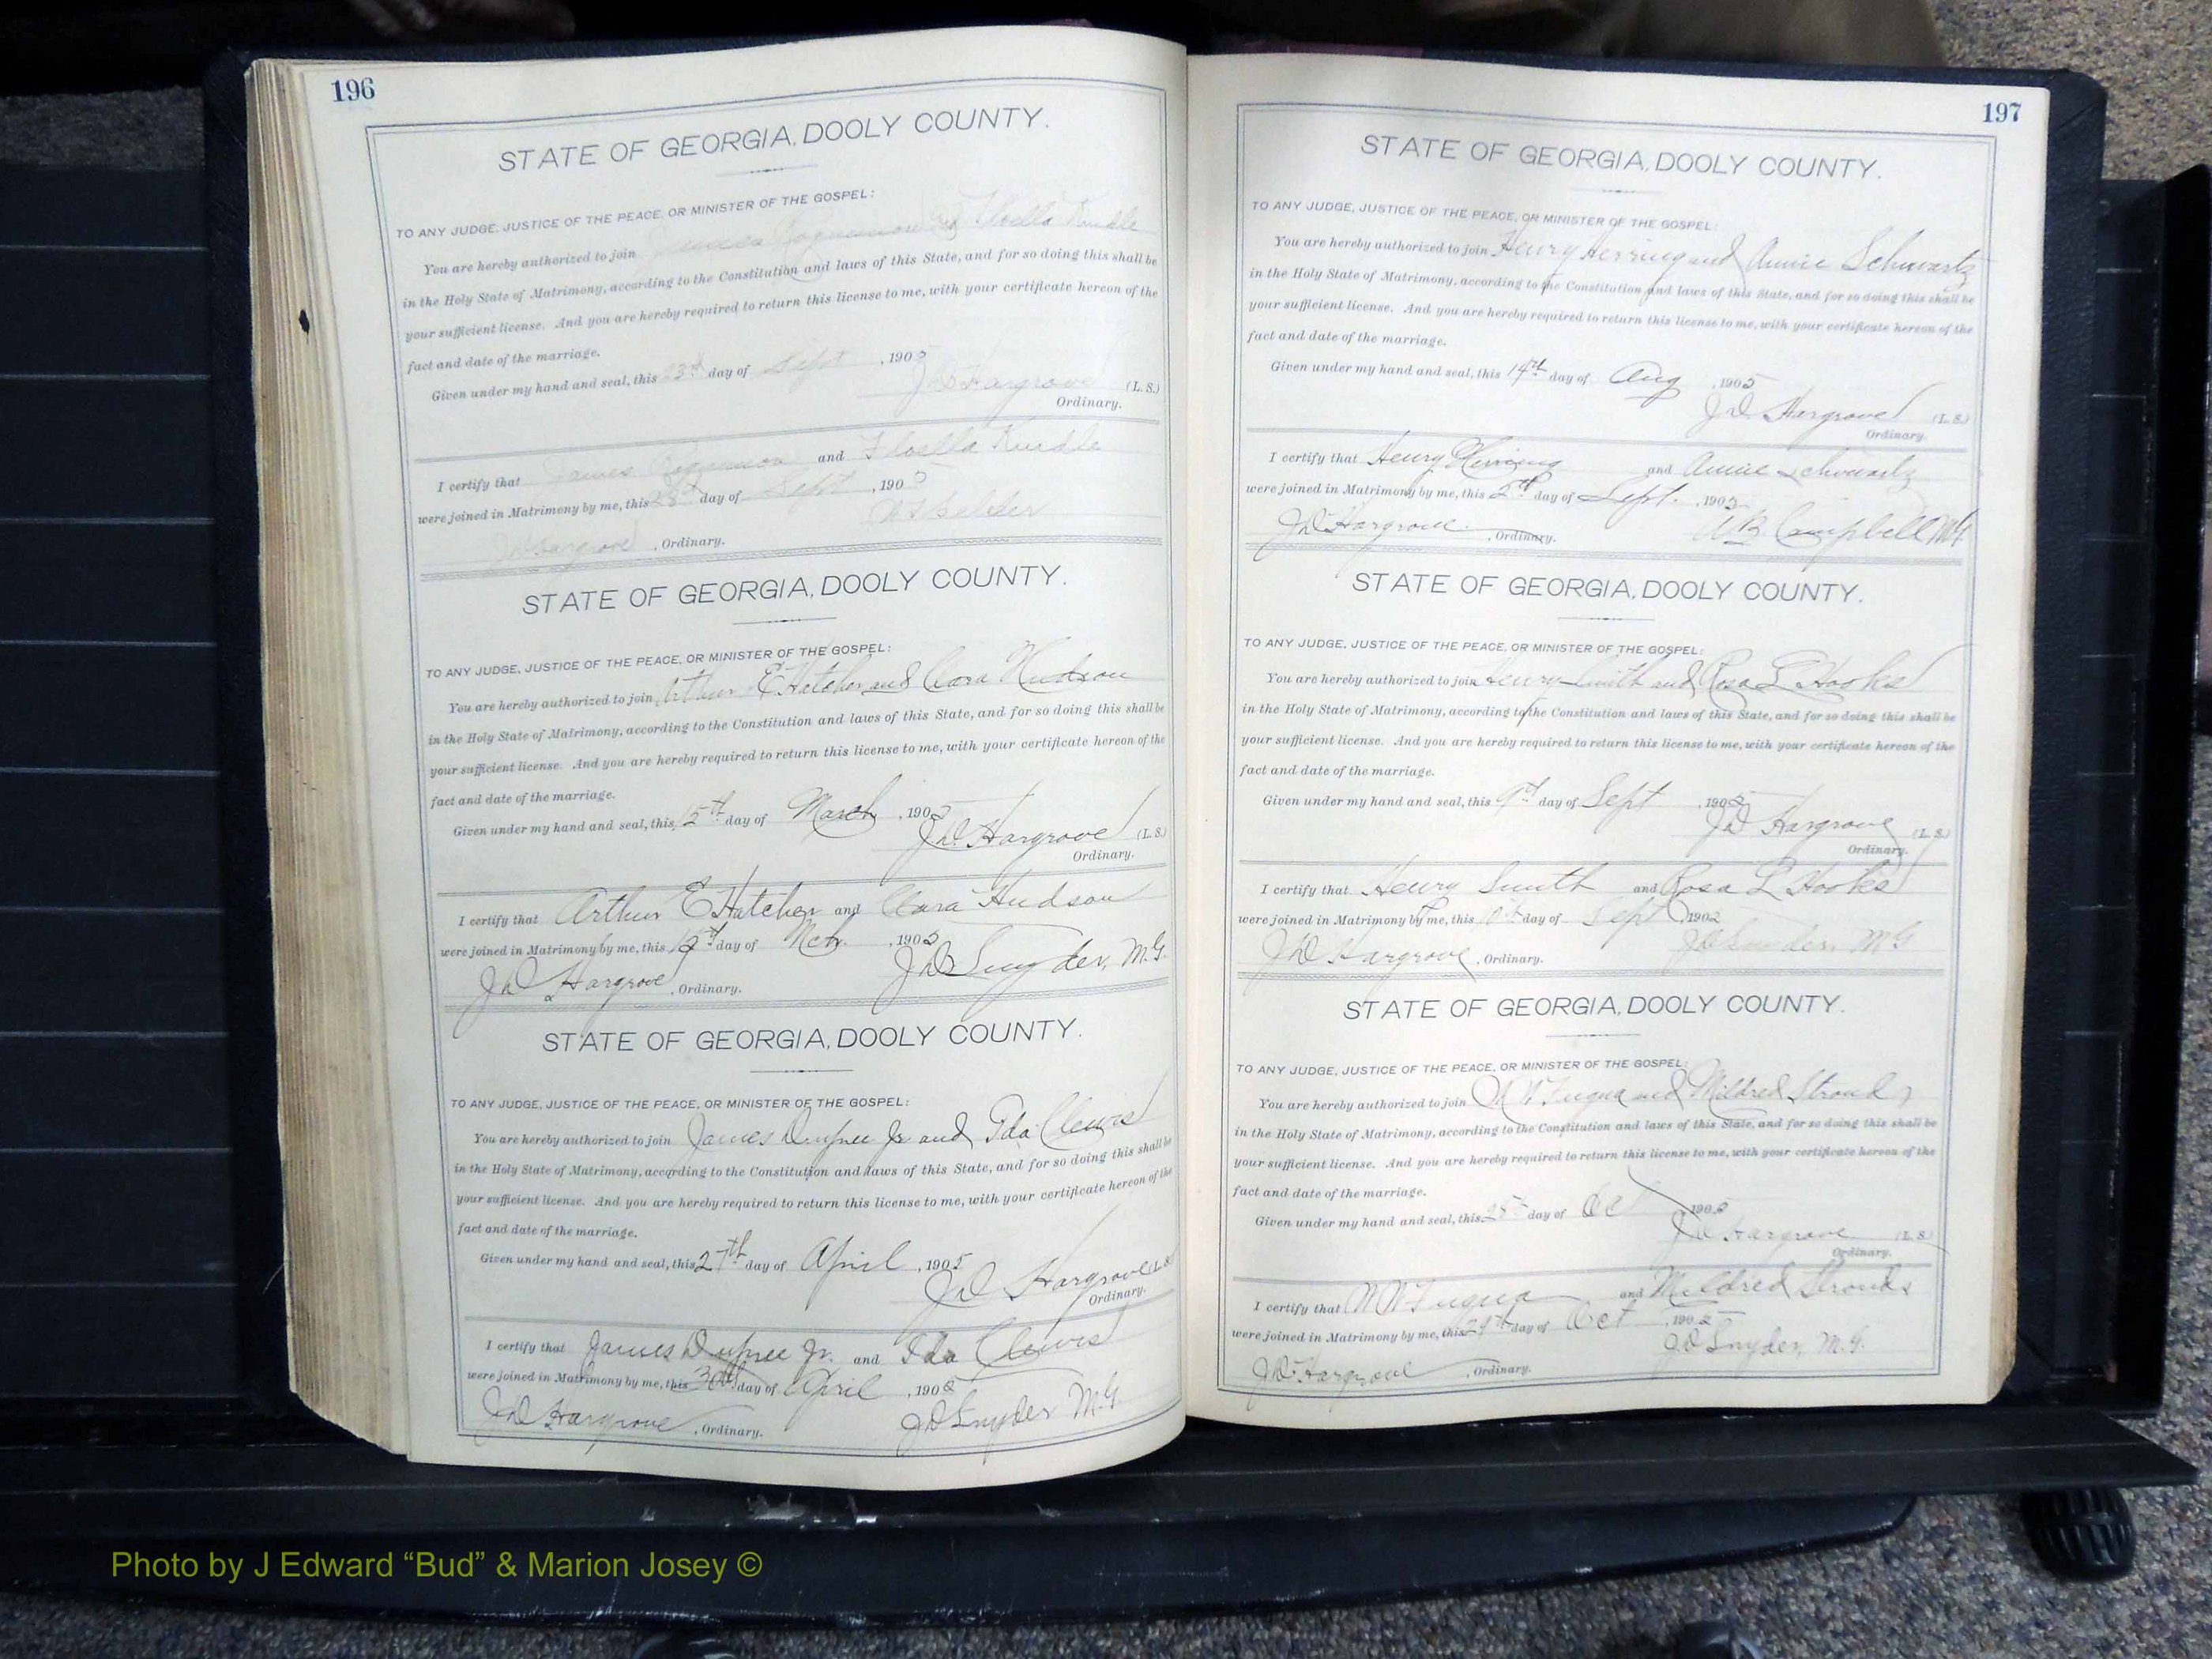 196
STATE OF GEORGIA, DOOLY COUNTY.
TO ANY JUDGE, JUSTICE OF THE PEACE, OR MINISTER OF THE GOSPEL:
You are hereby authorized to join James and Floella
in the Holy State of Matrimony, according to the Constitution and laws of this State, and for so doing this shall be
your sufficient license. And you are hereby required to return this license to me, with your certificate hereon of the
fact and date of the marriage.
Given under my hand and seal, this 23rd day of Sept, 1905
J D Hargrove (L. S.)
Ordinary.
I certify that James and Floella
were joined in Matrimony by me, this day of Sept, 1905
J D Hargrove, Ordinary.
STATE OF GEORGIA, DOOLY COUNTY.
TO ANY JUDGE, JUSTICE OF THE PEACE, OR MINISTER OF THE GOSPEL:
You are hereby authorized to join Arthur E Hatcher and Clara Hudson
in the Holy State of Matrimony, according to the Constitution and laws of this State, and for so doing this shall be
your sufficient license. And you are hereby required to return this license to me, with your certificate hereon of the
fact and date of the marriage.
Given under my hand and seal, this 15th day of March, 1905
J D Hargrove (L. S.)
Ordinary.
I certify that Arthur E Hatcher and Clara Hudson
were joined in Matrimony by me, this day of Mch., 1905
J D Snyder, M.G.
J D Hargrove, Ordinary.
STATE OF GEORGIA, DOOLY COUNTY.
TO ANY JUDGE, JUSTICE OF THE PEACE, OR MINISTER OF THE GOSPEL:
You are hereby authorized to join James Dupree Jr and Ida Clewis
in the Holy State of Matrimony, according to the Constitution and laws of this State, and for so doing this shall be
your sufficient license. And you are hereby required to return this license to me, with your certificate hereon of the
fact and date of the marriage.
Given under my hand and seal, this 27th day of April, 1905
J D Hargrove (L. S.)
Ordinary.
I certify that James Dupree Jr. and Ida Clewis
were joined in Matrimony by me, this 30th day of April, 1905
J D Snyder M.G.
J D Hargrove, Ordinary.
197
STATE OF GEORGIA, DOOLY COUNTY.
TO ANY JUDGE, JUSTICE OF THE PEACE, OR MINISTER OF THE GOSPEL:
You are hereby authorized to join Henry Herring and Annie Schwartz
in the Holy State of Matrimony, according to the Constitution and laws of this State, and for so doing this shall be
your sufficient license. And you are hereby required to return this license to me, with your certificate hereon of the
fact and date of the marriage.
Given under my hand and seal, this 14th day of Aug, 1905
J D. Hargrove (L. S.)
Ordinary.
I certify that Henry Herring and Annie Schwartz
were joined in Matrimony by me, this 5th day of Sept., 1905
W B. Campbell M.G.
J D Hargrove, Ordinary.
STATE OF GEORGIA, DOOLY COUNTY.
TO ANY JUDGE, JUSTICE OF THE PEACE, OR MINISTER OF THE GOSPEL:
You are hereby authorized to join Henry Smith and Rosa L Hooks
in the Holy State of Matrimony, according to the Constitution and laws of this State, and for so doing this shall be
your sufficient license. And you are hereby required to return this license to me, with your certificate hereon of the
fact and date of the marriage.
Given under my hand and seal, this 9th day of Sept, 1905
J D Hargrove (L. S.)
Ordinary.
I certify that Henry Smith and Rosa L Hooks
were joined in Matrimony by me, this 10th day of Sept 1905
J D Snyder, M G
J D Hargrove, Ordinary.
STATE OF GEORGIA, DOOLY COUNTY.
TO ANY JUDGE, JUSTICE OF THE PEACE, OR MINISTER OF THE GOSPEL:
You are hereby authorized to join W W Fuqua and Mildred Strouds
in the Holy State of Matrimony, according to the Constitution and laws of this State, and for so doing this shall be
your sufficient license. And you are hereby required to return this license to me, with your certificate hereon of the
fact and date of the marriage.
Given under my hand and seal, this day of Oct 1905
J D Hargrove (L. S.)
Ordinary.
I certify that W W Fuqua and Mildred Strouds
were joined in Matrimony by me, this 29th day of Oct, 1905
J D Snyder, M.G.
J D Hargrove, Ordinary.
Photo by J Edward “Bud” & Marion Josey ©